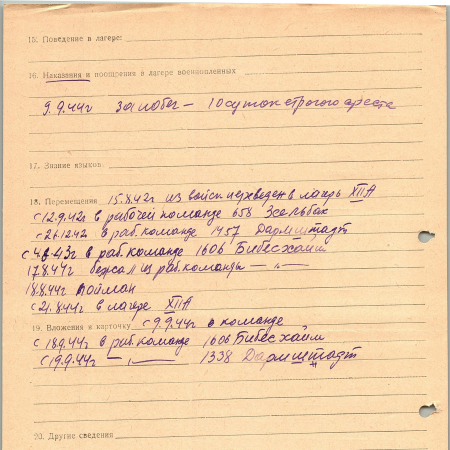 15. Поведение в лагере:
16. Наказания и поощрения в лагере военнопленных
9.9.44г за побег — 10 суток строгого ареста
17. Знание языков
18. Перемещения 15.8.42г из войск переведен в лагерь XIIА
с 12.9.42 в рабочей команде 658 Заальбах
с 26.12.42 в раб. команде 1457 Дармштадт
в раб. команде 1606 Бибесхайм
17.8.44г бежал из раб. команды — „ —
18.8.44г пойман
с 21.8.44г в лагере XIIА
19. Вложения в карточку с 9.9.44г в команде
с 18.9.44г в раб. команде 1606 Бибесхайм
с 19.9.44г — „ — 1338 Дармштадт
20. Другие сведения